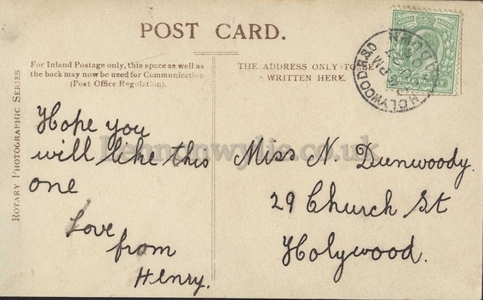 POST CARD.
For Inland Postage only, this space as well as
the back may now be used for Communication
(Post Office Regulation).
THE ADDRESS ONLY TO BE
WRITTEN HERE.
ROTARY PHOTOGRAPHIC SERIES
Hope you
will like this
one
Love
from
Henry.
Miss N. Dunwoody.
29 Church St
Holywood.
HOLYWOOD R.S.O
CO DOWN